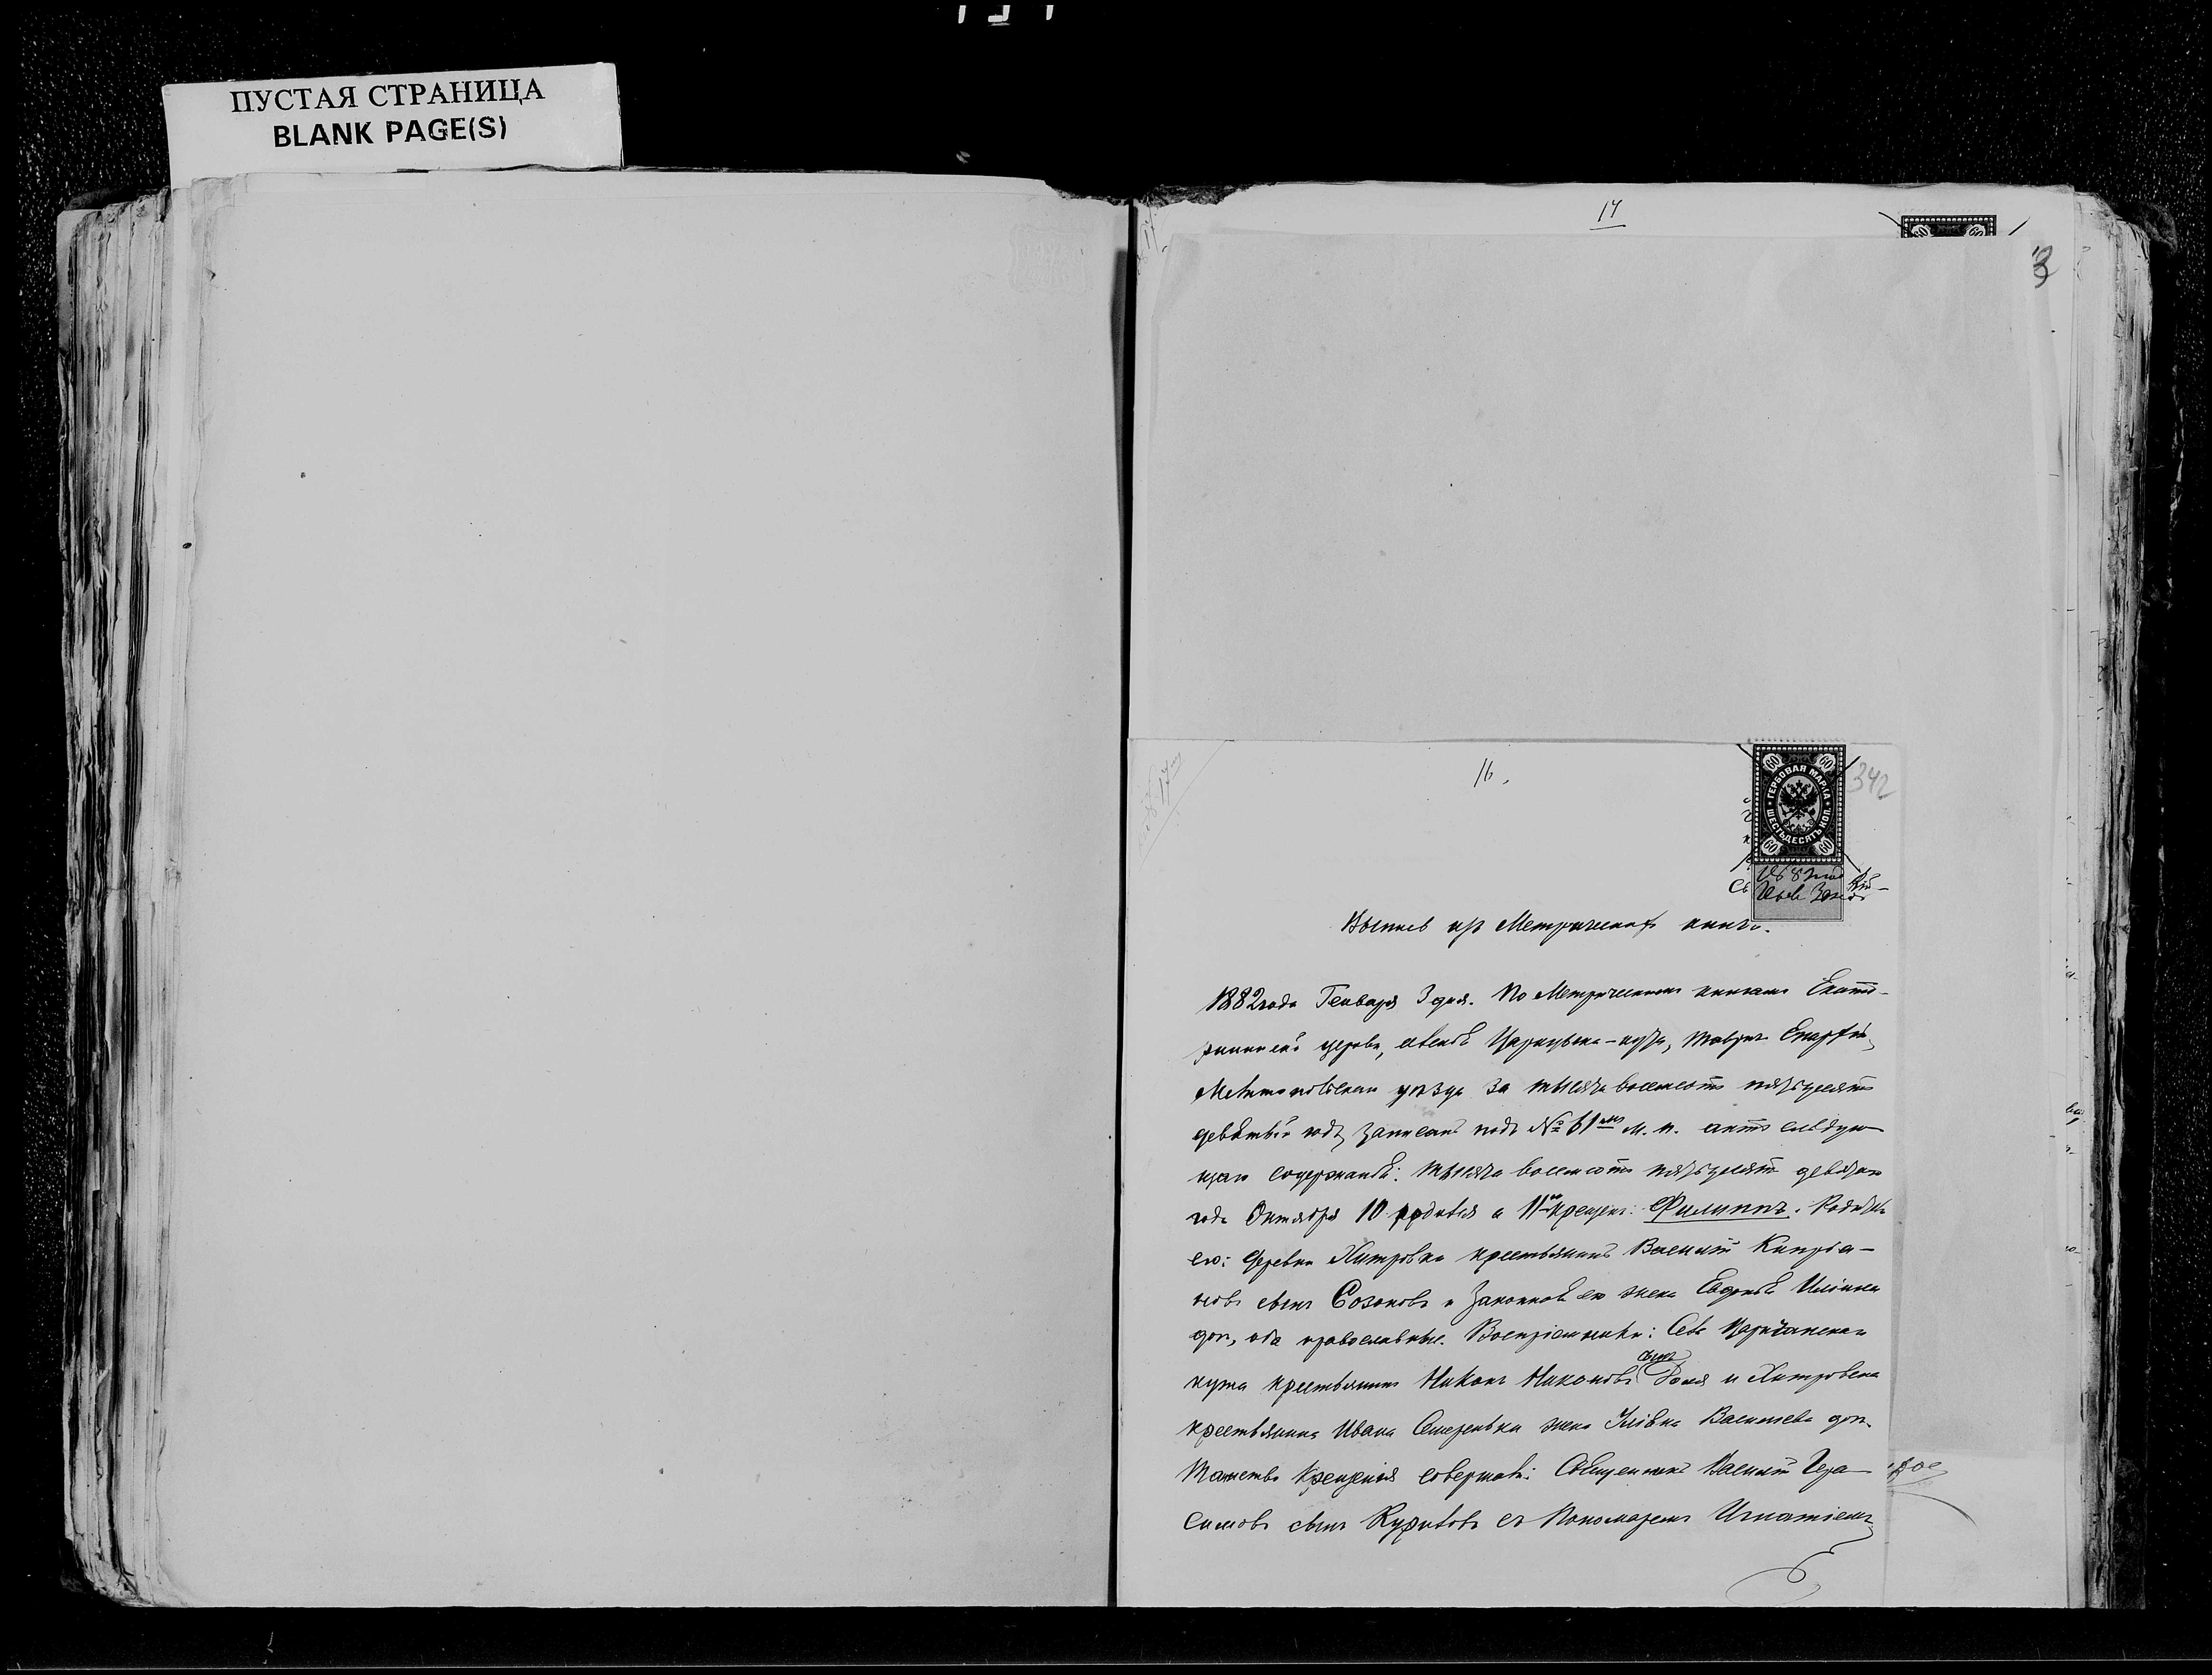 ПУСТАЯ СТРАНИЦА
BLANK PAGE(S)
14
16.
342
60 60
ГЕРБОВАЯ МАРКА
ШЕСТЬДЕСЯТЪ КОП.
60 60
Выпись изъ Метрической книги.
1882 года Генваря 3 дня. По Метрическимъ книгамъ Екате-
рининской церкви, селенія Царицына-кута, Таврич. Епархіи,
Мелитопольскаго уѣзда за тысяча восемьсотъ пятьдесятъ
девятый годъ, записанъ подъ № 61мъ м. п. актъ слѣдую-
щаго содержанія: тысяча восемьсотъ пятьдесятъ девятаго
года Октября 10 родился а 11го крещенъ: Филиппъ. Родители
его: деревни Хитровки крестьянинъ Василій Кипріа-
новъ сынъ Созоновъ и законная его жена Евдокія Ильина
доч., оба православные. Воспріемники: Села Царичанскаго
кута крестьянинъ Никонъ Никоновъ сынъ и Хитровска
крестьянина Ивана жена Васильева доч.
Таинство Крещенія совершалъ: Священникъ Василій Гера-
симовъ сынъ Курилов съ Пономаремъ Игнатіемъ